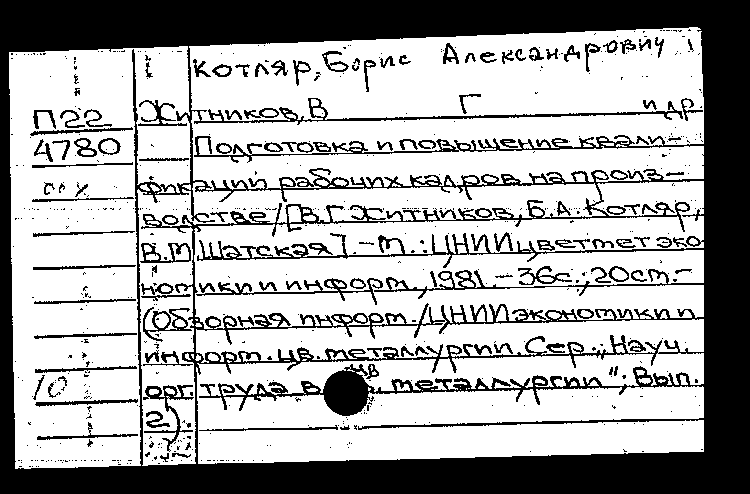 Котляр, Борис Александрович
П22 Житников, В Г и др
4780 Подготовка и повышение квали-
фикации рабочих кадров на произ-
водстве / [В.Г. Житников, Б.А. Котляр,
В.М Шатская]. - М.: ЦНИИцветмет эко
номики и информ., 1981. - 36с.; 20см. -
(Обзорная информ. / ЦНИИ экономики и
информ. цв. металлургии. Сер.; Науч.
10 орг. труда в цв. металлургии"; Вып.
2).